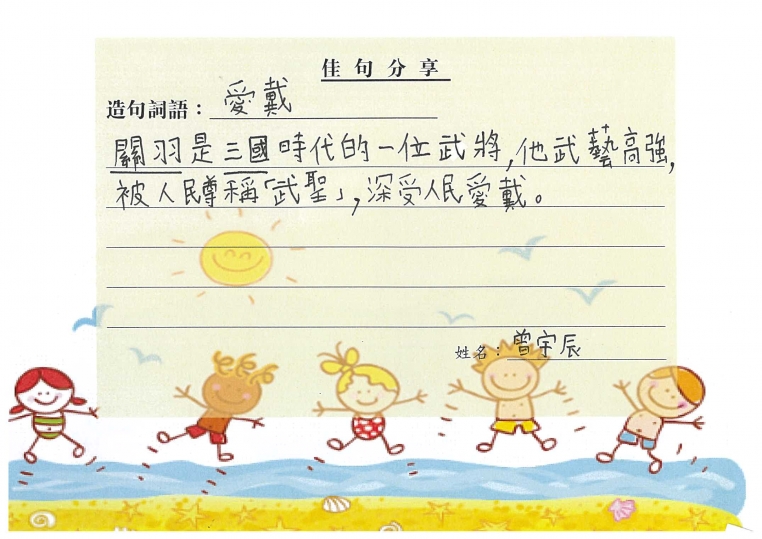 佳句分享
造句詞語：愛戴
關羽是三國時代的一位武將,他武藝高強,
被人民尊稱「武聖」,深受人民愛戴。
姓名：曾宇辰